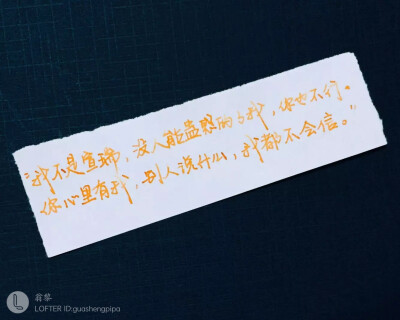 “我不是宣璣，没人能蛊惑的了我，你也不行。
你心里有我，别人说什么，我都不会信。”
翁琴
LOFTER ID:guashengpipa